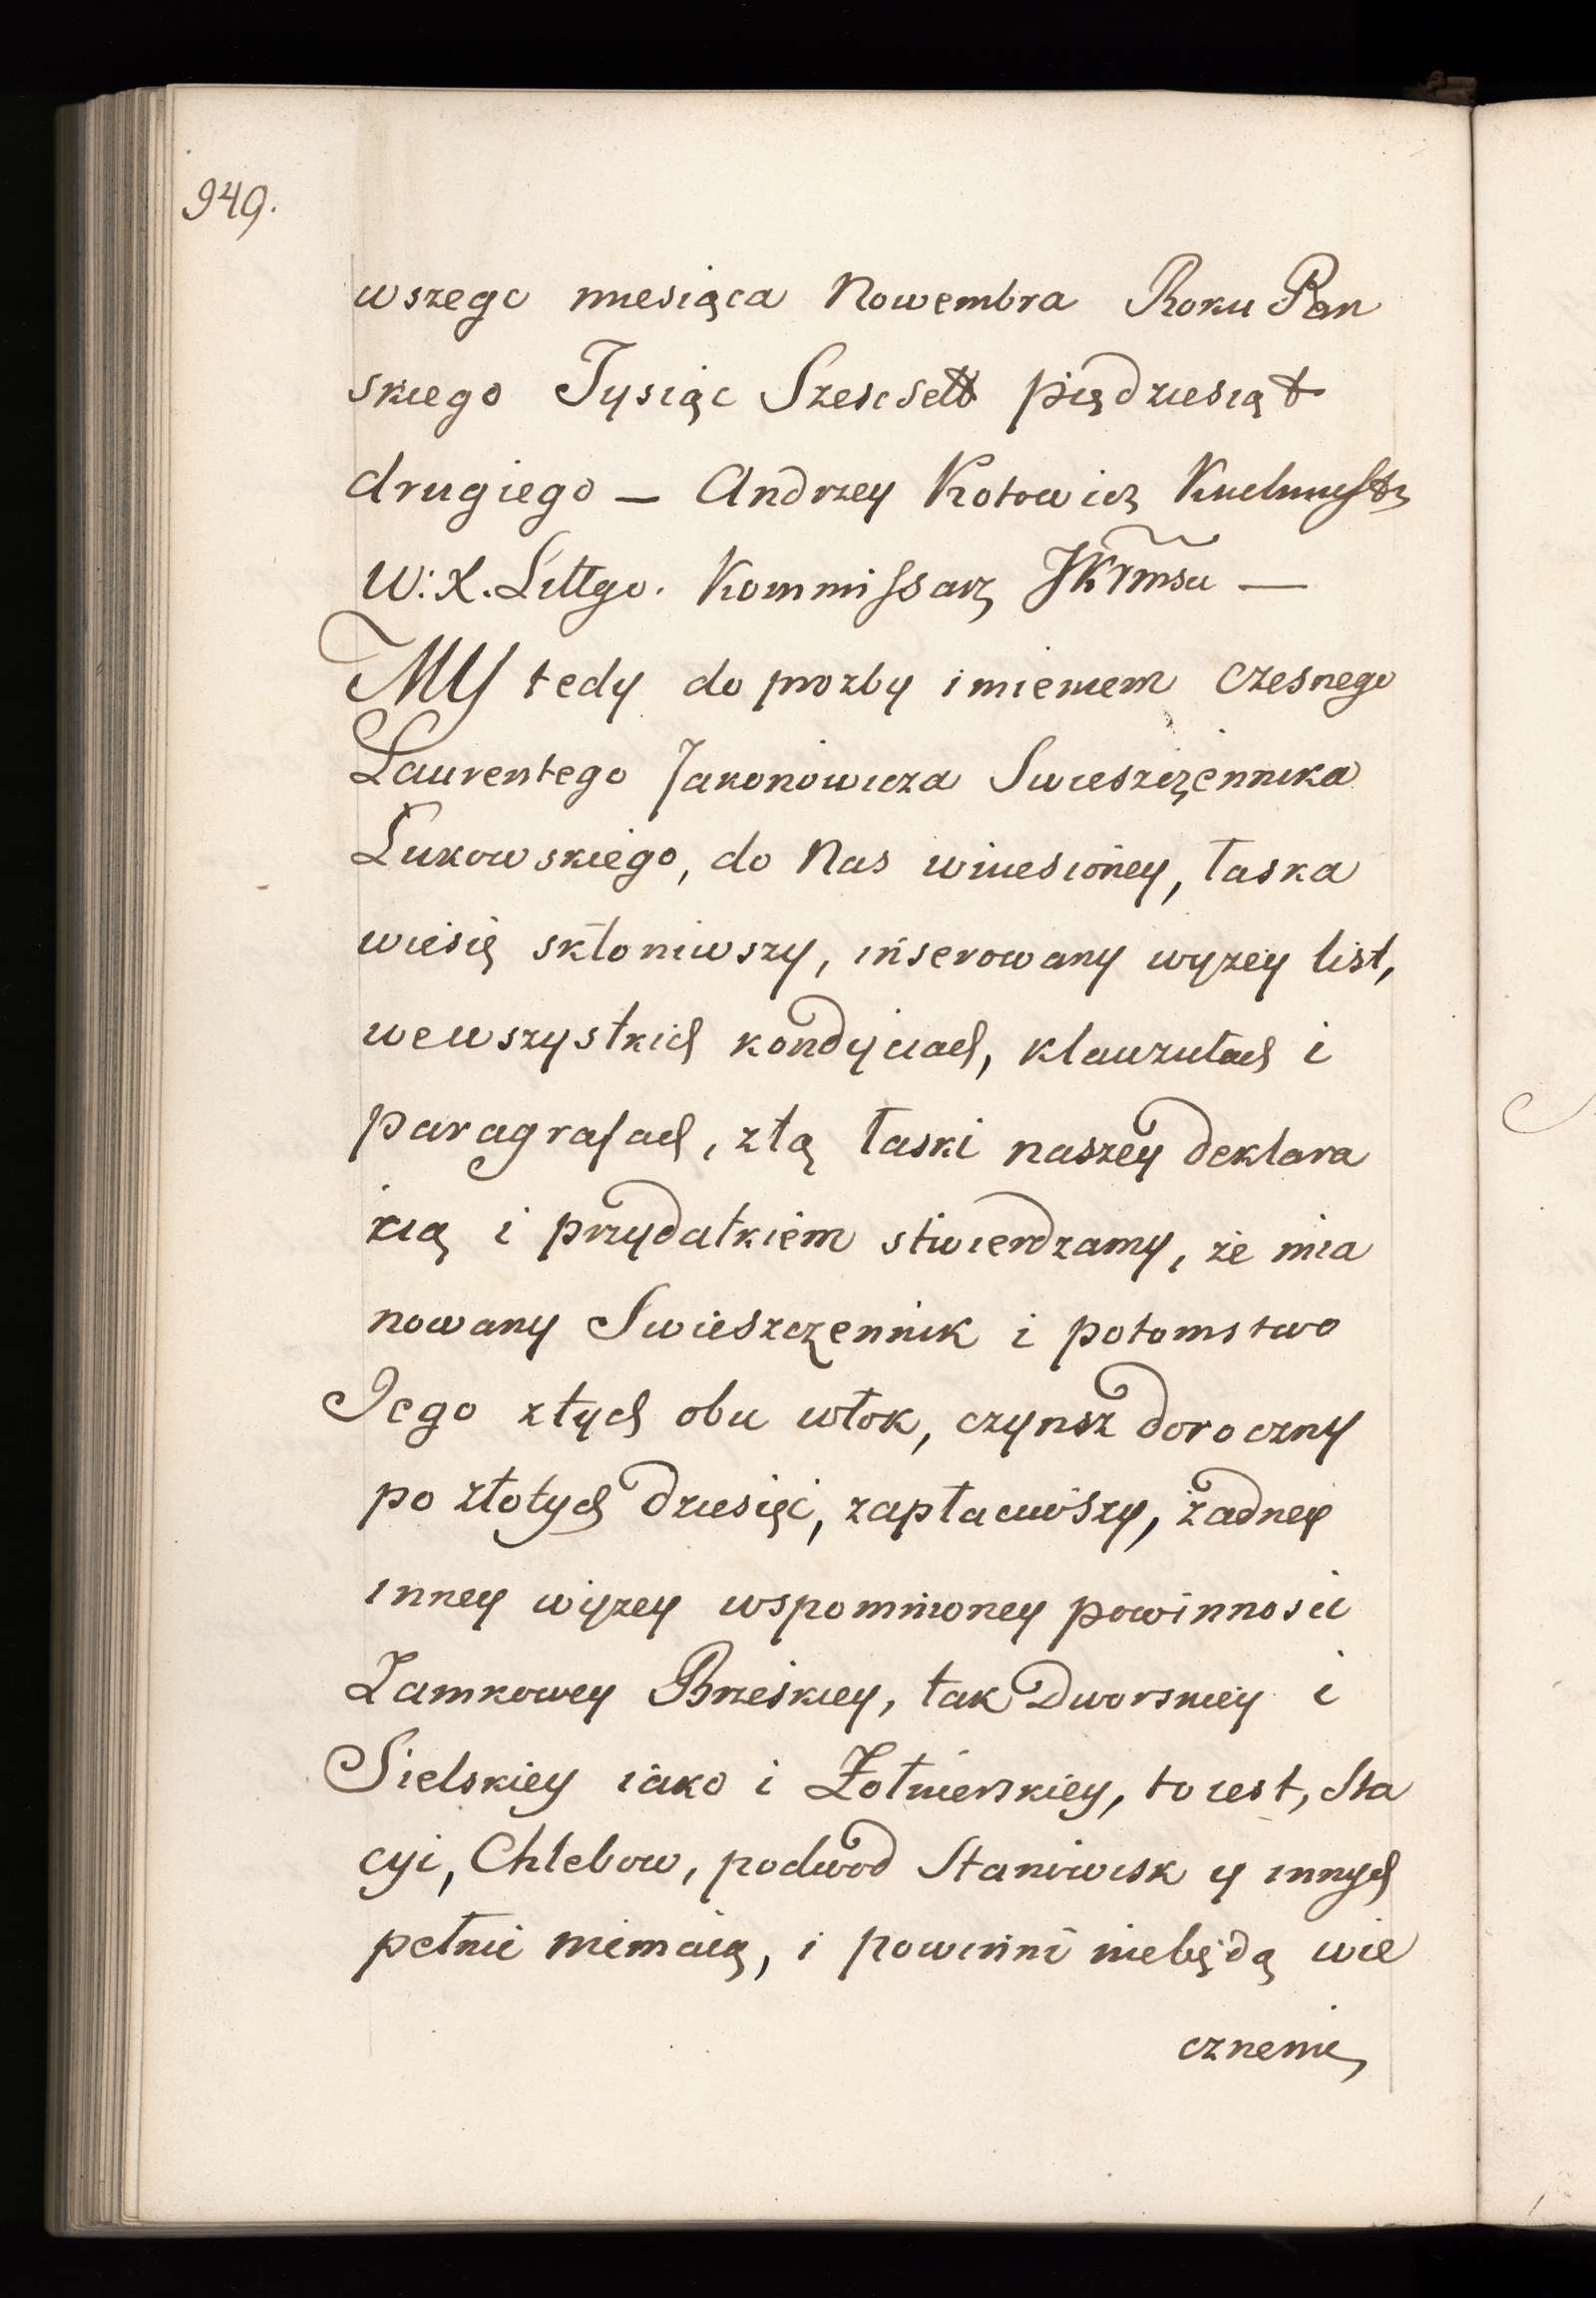 949.
wszego miesiąca Nowembra Roku Pan
skiego Tysiąc Szescsett pięդziesiąt
drugiego — Andrzey Kotowicz Kuchmystrz
W: X. Littgo. Kommissarz JKrmsci —
MY tedy do prozby imieniem czesnego
Laurentego Jakonowicza Swieszczennika
Lukowskiego, do Nas wniesioney, łaska
wiesię skłoniwszy, inserowany wyzey list,
wewszystkich kondyciach, klauzułach i
paragrafach, ztą łaski naszey deklara
cią i przydatkiem stwierdzamy, że mia
nowany Swieszczennik i potomstwo
Jego ztych obu włok, czynsz doroczny
po złotych dziesięć, zapłaciwszy, żadney
inney wyzey wspomnioney powinnosci
Zamkowey Brzeskiey, tak Dworskiey i
Sielskiey iako i Żołnierskiey, to iest, Sta
cyi, Chlebow, podwod Stanowisk y innych
pełnić niemaią, i powinni niebędą wie
cznemi,